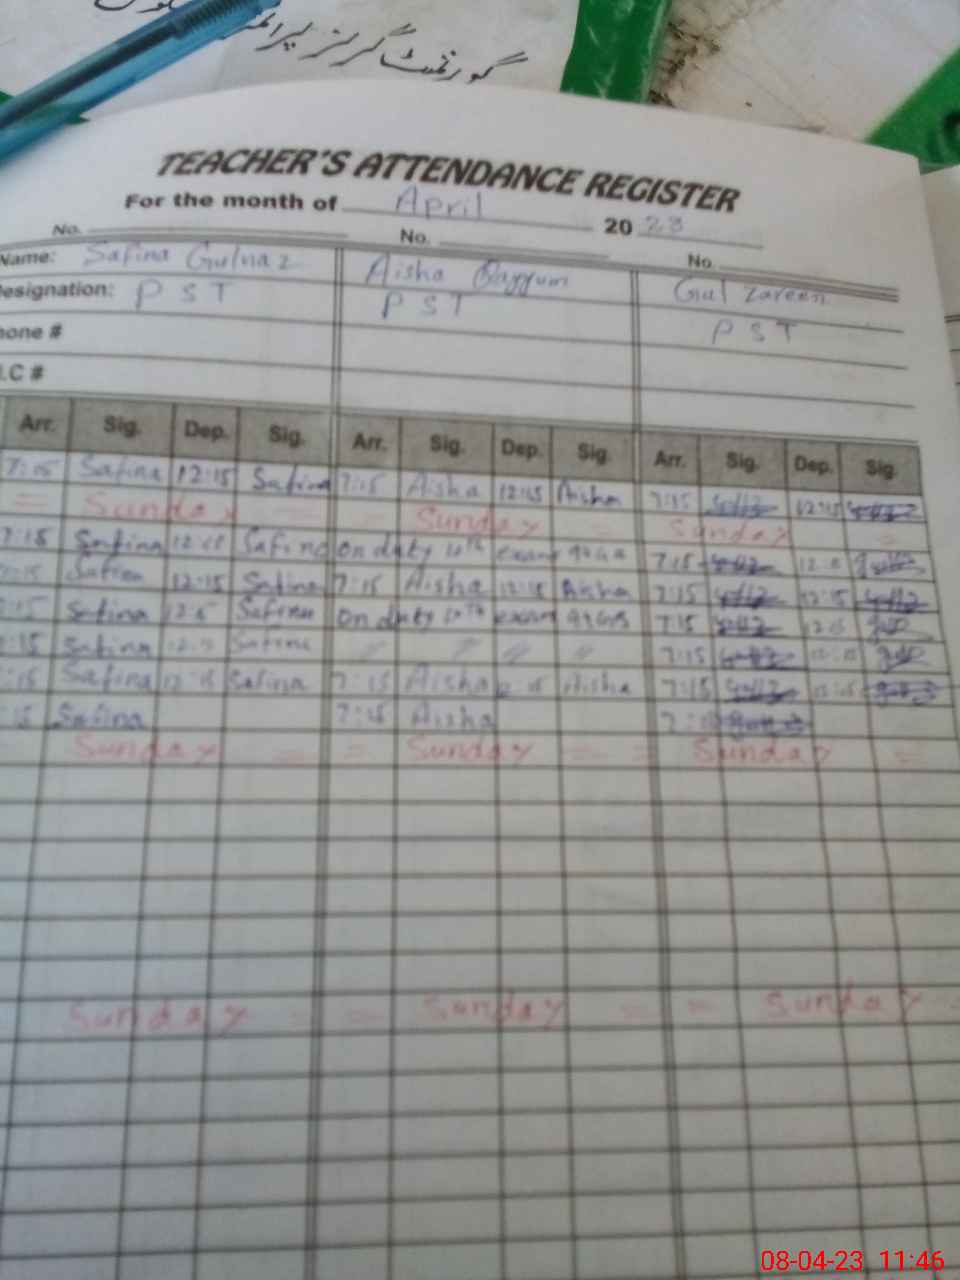 گورنمنٹ گرلز پرائمری
TEACHER'S ATTENDANCE REGISTER
For the month of April 2023
No. No. No.
Name: Safina Gulnaz Aisha Qayyum Gul Zareen
esignation: PST PST PST
hone #
.C #
Arr. Sig. Dep. Sig. Arr. Sig. Dep. Sig. Arr. Sig. Dep. Sig.
7:15 Safina 12:15 Safina 7:15 Aisha 12:15 Aisha 7:15 12:15
= Sunday = = Sunday = Sunday =
7:15 Safina 12:15 Safina on duty 10th exam 7:15 12:15
7:15 Safina 12:15 Safina 7:15 Aisha 12:15 Aisha 7:15 12:15
:15 Safina 12:15 Safina on duty 10th exam 7:15 12:15
:15 Safina 12:15 Safina " " " " 7:15 12:15
:15 Safina 12:15 Safina 7:15 Aisha 12:15 Aisha 7:15 12:15
:15 Safina 7:15 Aisha 7:15
Sunday = = Sunday = = Sunday =
Sunday = = Sunday = = Sunday
08-04-23 11:46